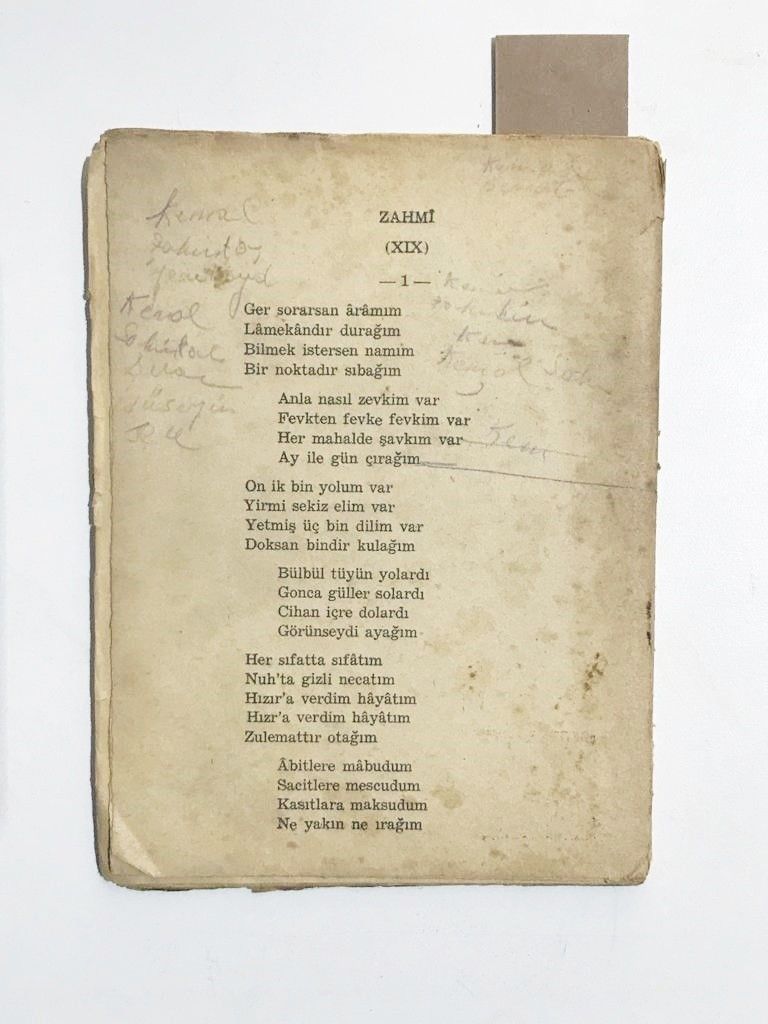 ZAHMÎ
(XIX)
— 1 —
Kemal
Ger sorarsan ârâmım
Lâmekândır durağım
Bilmek istersen namim
Bir noktadır sıbağım
Anla nasıl zevkim var
Fevkten fevke fevkim var
Her mahalde şavkım var
Ay ile gün çırağım
On ik bin yolum var
Yirmi sekiz elim var
Yetmiş üç bin dilim var
Doksan bindir kulağım
Bülbül tüyün yolardı
Gonca güller solardı
Cihan içre dolardı
Görünseydi ayağım
Her sıfatta sıfâtım
Nuh'ta gizli necatım
Hızır'a verdim hâyâtım
Hızr'a verdim hâyâtım
Zulemattır otağım
Âbitlere mâbudum
Sacitlere mescudum
Kasıtlara maksudum
Ne yakın ne ırağım